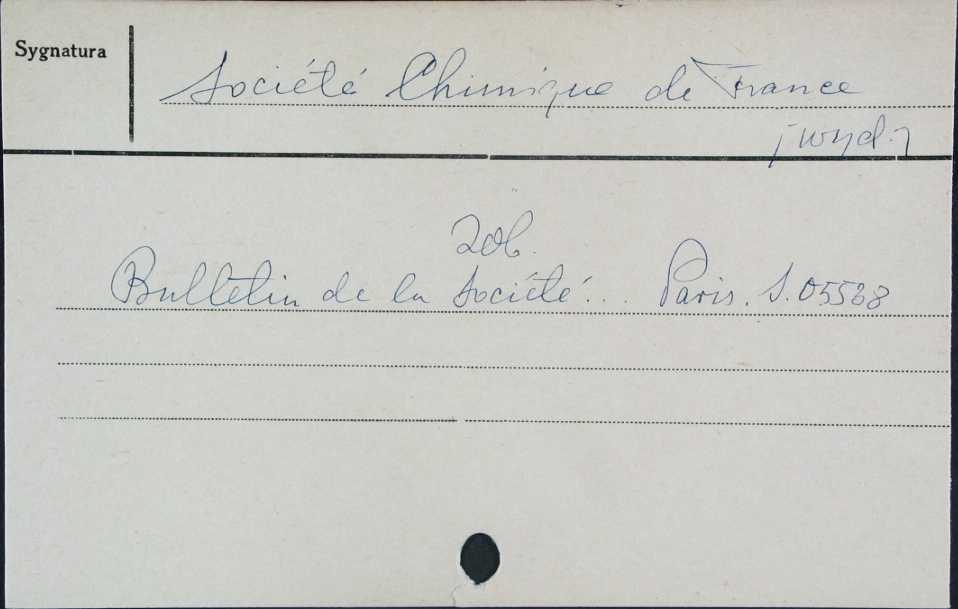 Sygnatura
Société Chimique de France
[wyd.]
zob.
Bulletin de la Société... Paris. S.05538